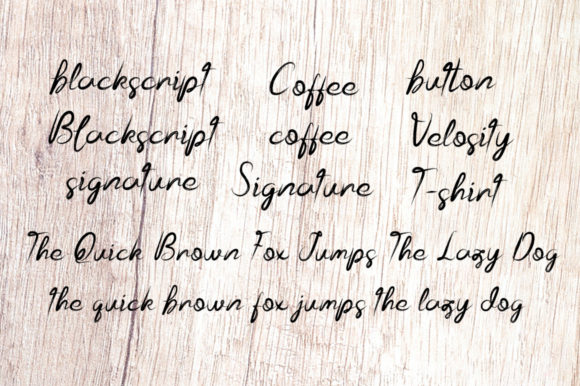 blackscript Coffee button
Blackscript coffee Velosity
signature Signature T-shirt
The Quick Brown Fox Jumps The Lazy Dog
the quick brown fox jumps the lazy dog